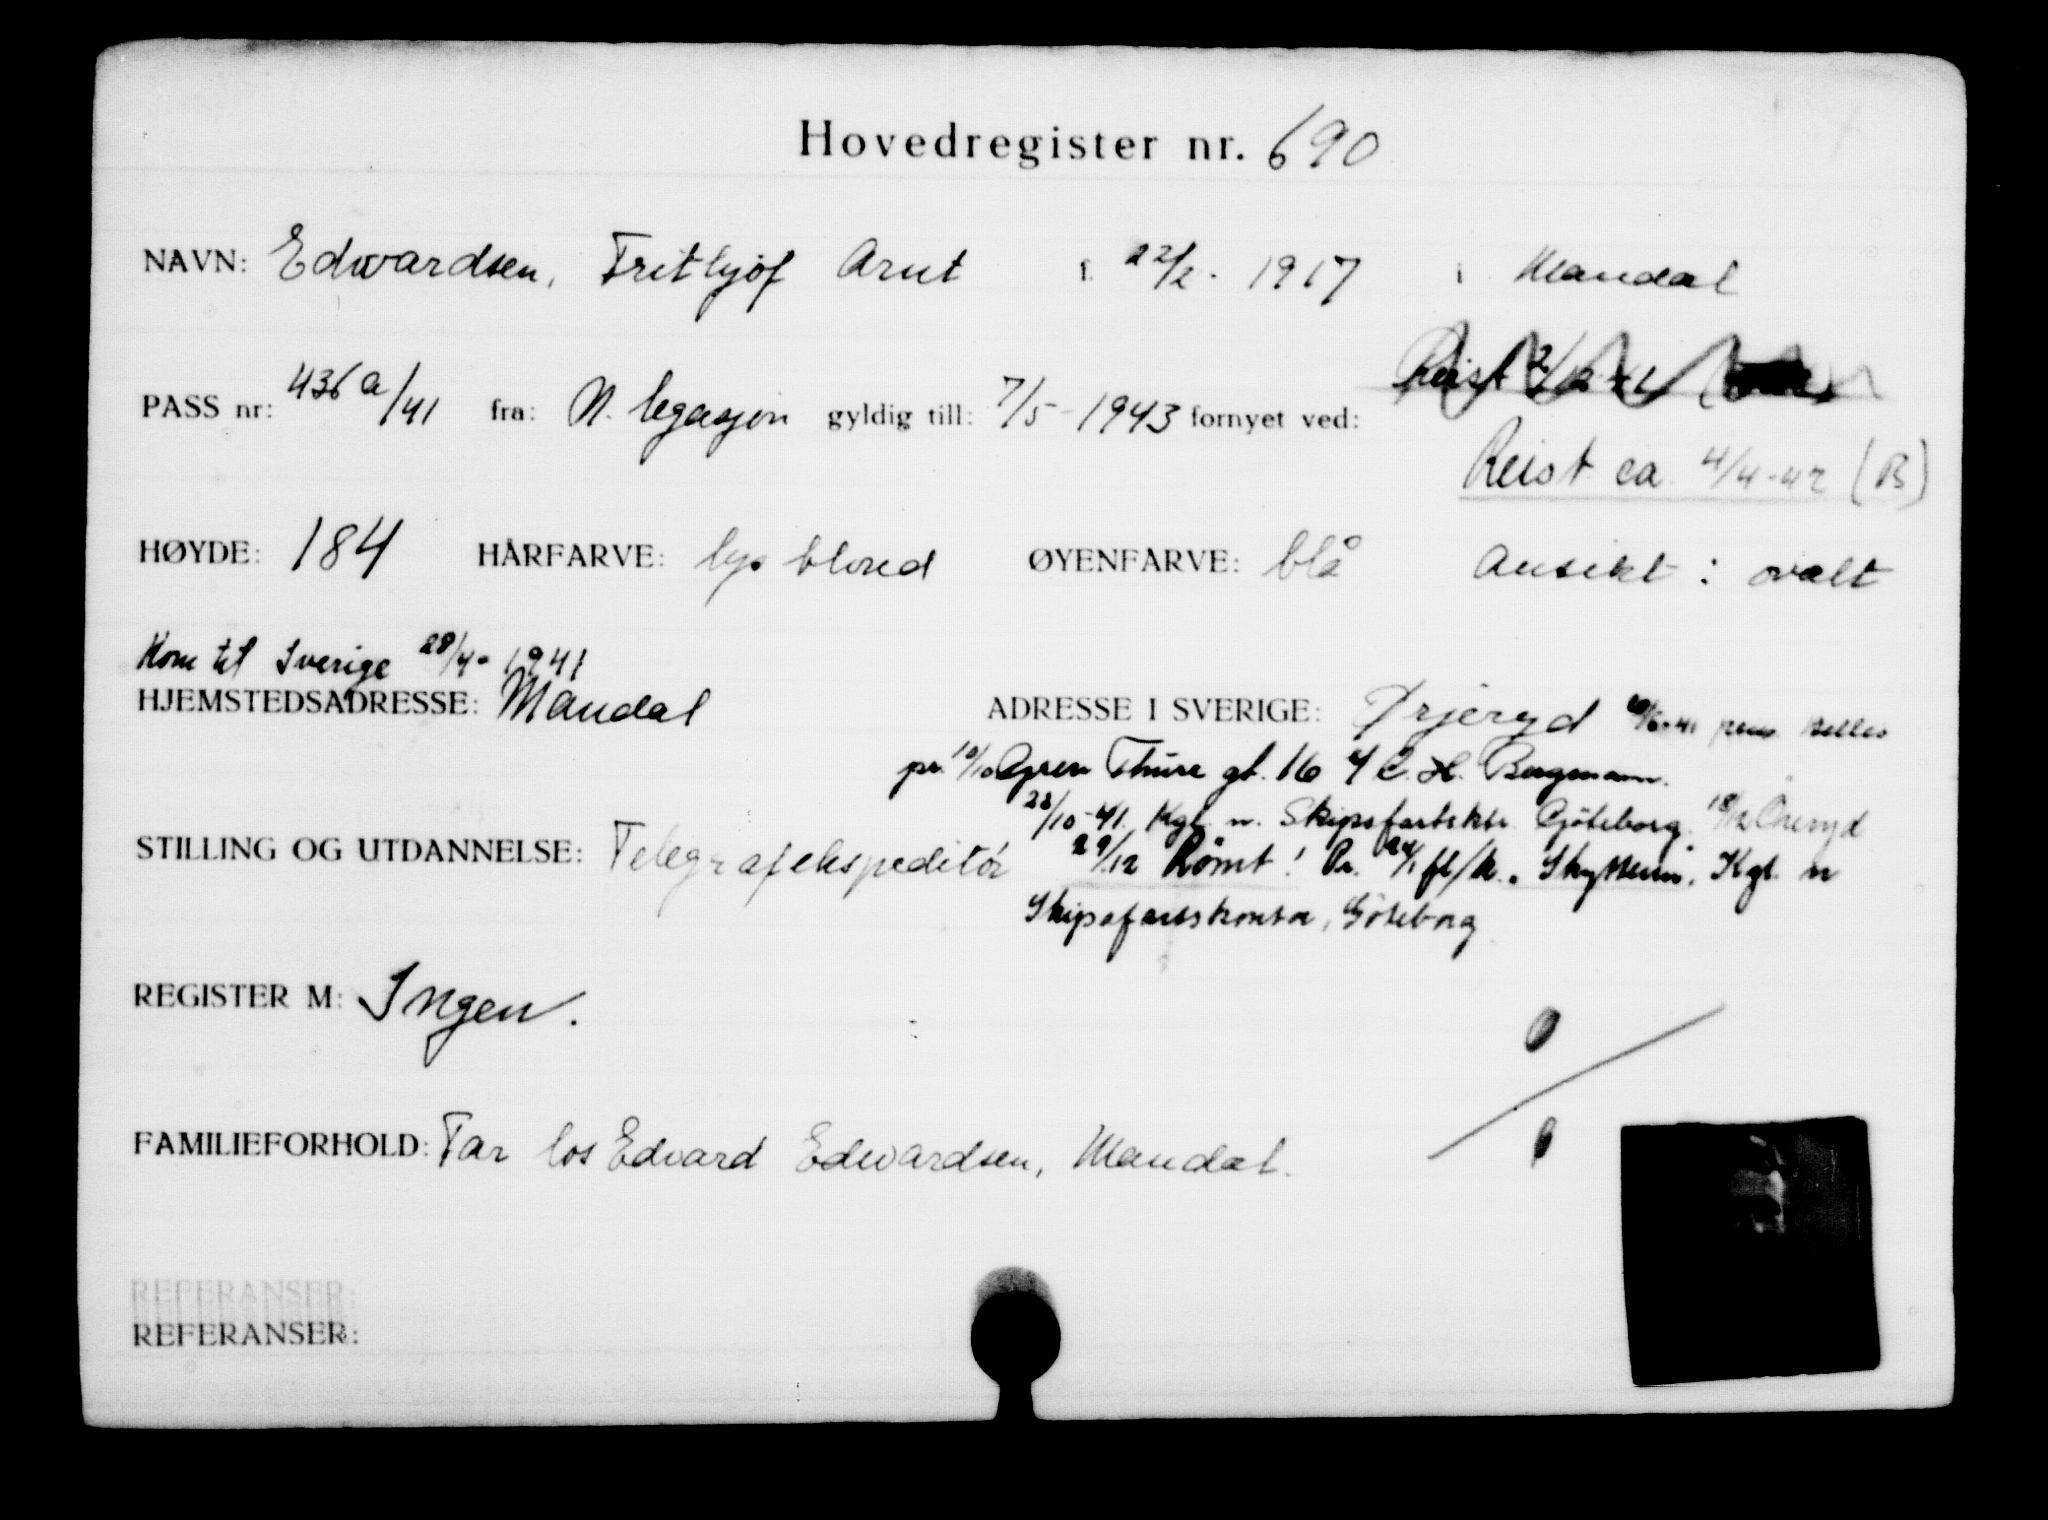 Hovedregister nr. 690
NAVN: Edwardsen, Frithjof Arnt f. 22/2. 1917 i Mandal
Reist
PASS nr: 436a/41 fra: N. legasjon gyldig till: 7/5-1943 fornyet ved:
Reist ca. 4/4-42 (B)
HØYDE: 184 HÅRFARVE: lys blond ØYENFARVE: blå Ansikt: ovalt
Kom til Sverige 28/4-1941
HJEMSTEDSADRESSE: Mandal ADRESSE I SVERIGE: Ørjeryd
pr. 10/10 Thure gt. 16 4 C. H. Bergmann.
/10-41. Kgl. n. Skipsfartsktr. Gøteborg. 18/12 Øreryd
STILLING OG UTDANNELSE: Telegrafekspeditør 29/12 Rømt! Pr. 24/1 Kgl. n
Skipsfartskontor, Göteborg
REGISTER M: Ingen.
0/0
FAMILIEFORHOLD: Far los Edvard Edwardsen, Mandal.
REFERANSER:
REFERANSER: